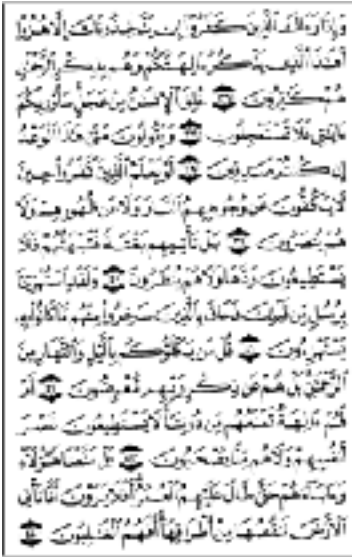 وَإِذَا رَءَاكَ ٱلَّذِينَ كَفَرُوٓا۟ إِن يَتَّخِذُونَكَ إِلَّا هُزُوًا
أَهَـٰذَا ٱلَّذِى يَذْكُرُ ءَالِهَتَكُمْ وَهُم بِذِكْرِ ٱلرَّحْمَـٰنِ
هُمْ كَـٰفِرُونَ ٣٦ خُلِقَ ٱلْإِنسَـٰنُ مِنْ عَجَلٍ سَأُو۟رِيكُمْ
ءَايَـٰتِى فَلَا تَسْتَعْجِلُونِ ٣٧ وَيَقُولُونَ مَتَىٰ هَـٰذَا ٱلْوَعْدُ
إِن كُنتُمْ صَـٰدِقِينَ ٣٨ لَوْ يَعْلَمُ ٱلَّذِينَ كَفَرُوا۟ حِينَ
لَا يَكُفُّونَ عَن وُجُوهِهِمُ ٱلنَّارَ وَلَا عَن ظُهُورِهِمْ وَلَا
هُمْ يُنصَرُونَ ٣٩ بَلْ تَأْتِيهِم بَغْتَةً فَتَبْهَتُهُمْ فَلَا
يَسْتَطِيعُونَ رَدَّهَا وَلَا هُمْ يُنظَرُونَ ٤٠ وَلَقَدِ ٱسْتُهْزِئَ
بِرُسُلٍ مِّن قَبْلِكَ فَحَاقَ بِٱلَّذِينَ سَخِرُوا۟ مِنْهُم مَّا كَانُوا۟ بِهِۦ
يَسْتَهْزِءُونَ ٤١ قُلْ مَن يَكْلَؤُكُم بِٱلَّيْلِ وَٱلنَّهَارِ مِنَ
ٱلرَّحْمَـٰنِ بَلْ هُمْ عَن ذِكْرِ رَبِّهِم مُّعْرِضُونَ ٤٢ أَمْ
لَهُمْ ءَالِهَةٌ تَمْنَعُهُم مِّن دُونِنَا لَا يَسْتَطِيعُونَ نَصْرَ
أَنفُسِهِمْ وَلَا هُم مِّنَّا يُصْحَبُونَ ٤٣ بَلْ مَتَّعْنَا هَـٰٓؤُلَآءِ
وَءَابَآءَهُمْ حَتَّىٰ طَالَ عَلَيْهِمُ ٱلْعُمُرُ أَفَلَا يَرَوْنَ أَنَّا نَأْتِى
ٱلْأَرْضَ نَنقُصُهَا مِنْ أَطْرَافِهَآ أَفَهُمُ ٱلْغَـٰلِبُونَ ٤٤